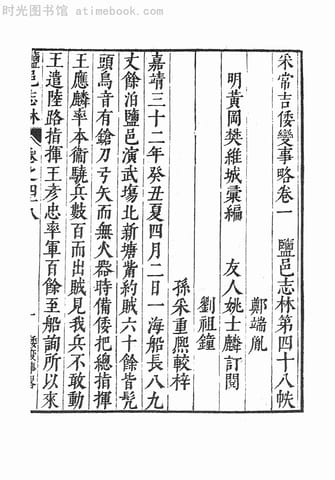 时光图书馆 · atimebook.com
采常吉倭變事略卷一 鹽邑志林第四十八帙
鄭端胤
明黃岡樊維城彙編 友人姚士麟訂閱
劉祖鐘
孫采重熙較梓
嘉靖三十二年癸丑夏四月二日一海船長八九
丈餘泊鹽邑演武塲北新塘觜約賊六十餘皆髡
頭鳥音有鎗刀弓矢而無火器時備倭把總指揮
王應麟率本衞驍兵數百而出賊見我兵不敢動
王遣陸路指揮王彥忠率軍百餘至船詢所以來
鹽邑志林 卷之四十八 一 倭變事畧